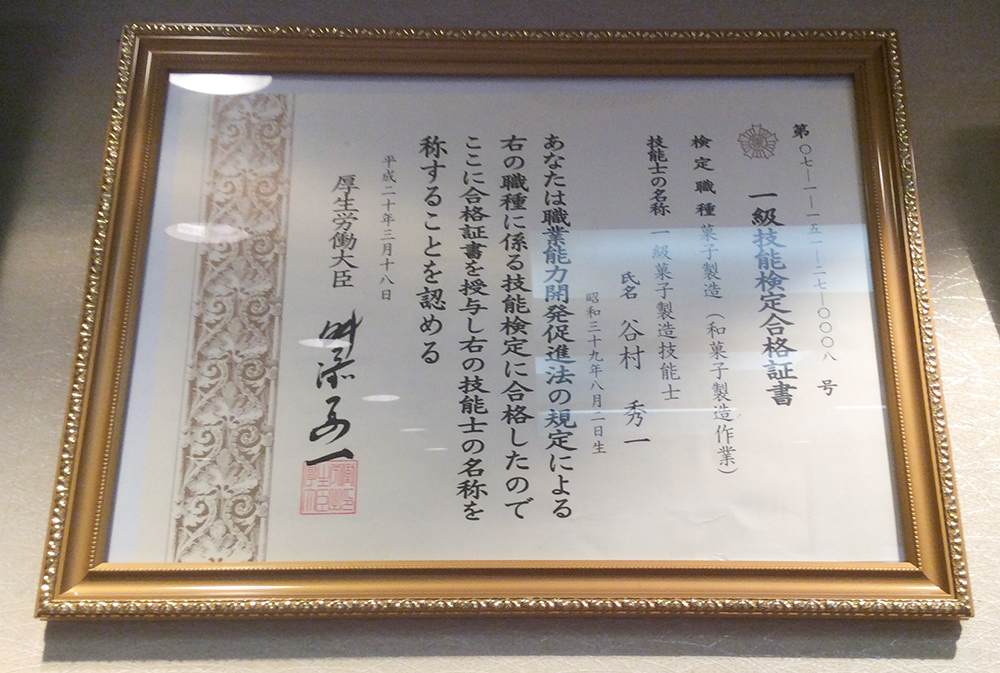 第〇七―一―一五一―二七―〇〇〇八 号
一級技能検定合格証書
検定職種 菓子製造(和菓子製造作業)
技能士の名称 一級菓子製造技能士
氏名 谷村 秀一
昭和三十九年八月二日生
あなたは職業能力開発促進法の規定による
右の職種に係る技能検定に合格したので
ここに合格証書を授与し右の技能士の名称を
称することを認める
平成二十年三月十八日
厚生労働大臣 舛添要一